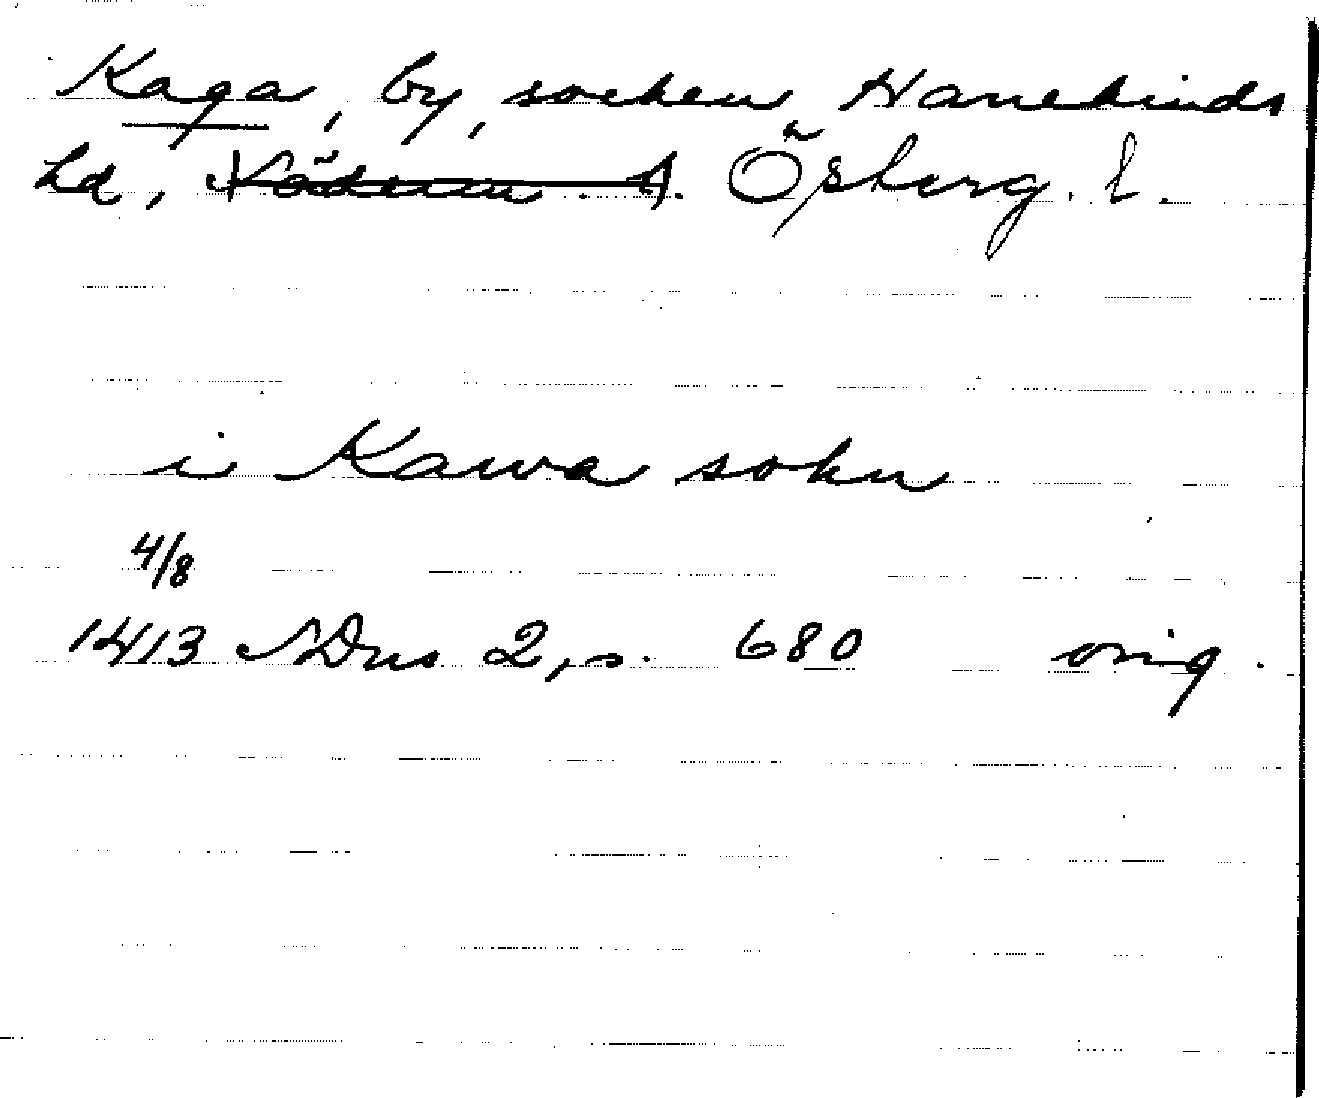 Kaga, by, socken, Hanekinds
hd, Östergötl.
i Kawa sokn
4/8
1413 SDns 2, s. 680 orig.